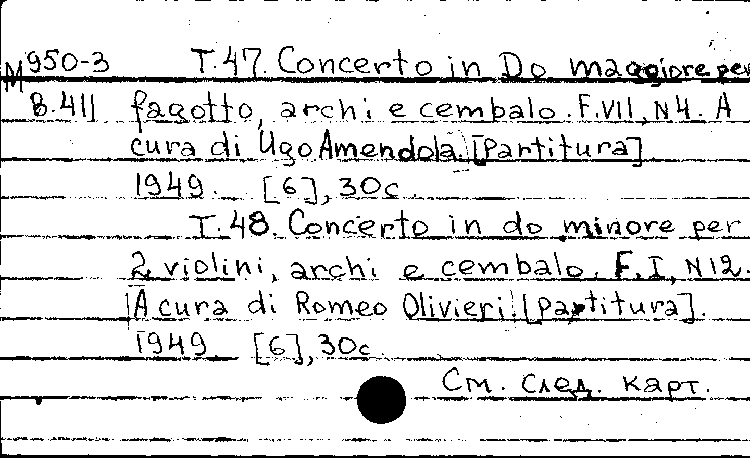 М950-3 Т.47. Concerto in Do maggiore per
В.411 fagotto, archi e cembalo. F.VII, N4. A
cura di Ugo Amendola. [Partitura]
1949. [6], 30с.
Т.48. Concerto in do minore per
2 violini, archi e cembalo. F.I, N12.
A cura di Romeo Olivieri. [Partitura].
1949 [6], 30с.
См. след. карт.